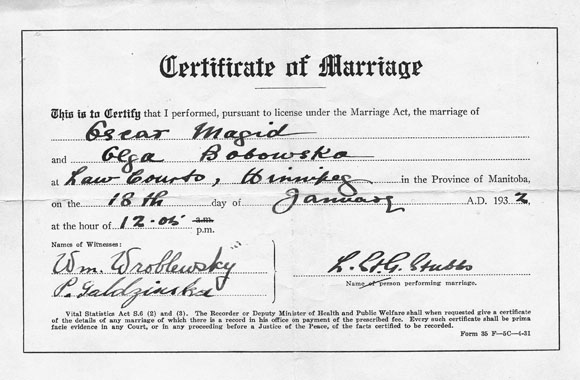 Certificate of Marriage
This is to Certify that I performed, pursuant to license under the Marriage Act, the marriage of
Oscar Magid
and Olga Bobowska
at Law Courts, Winnipeg in the Province of Manitoba,
on the 18th day of January A.D. 1932.
at the hour of 12.05 a.m.
p.m.
Names of Witnesses:
Wm. Wroblewsky
P. Galdzinska
L. St. G. Stubbs
Name of person performing marriage.
Vital Statistics Act S.6 (2) and (3). The Recorder or Deputy Minister of Health and Public Welfare shall when requested give a certificate
of the details of any marriage of which there is a record in his office on payment of the prescribed fee. Every such certificate shall be prima
facie evidence in any Court, or in any proceeding before a Justice of the Peace, of the facts certified to be recorded.
Form 35 F—5C—4-31